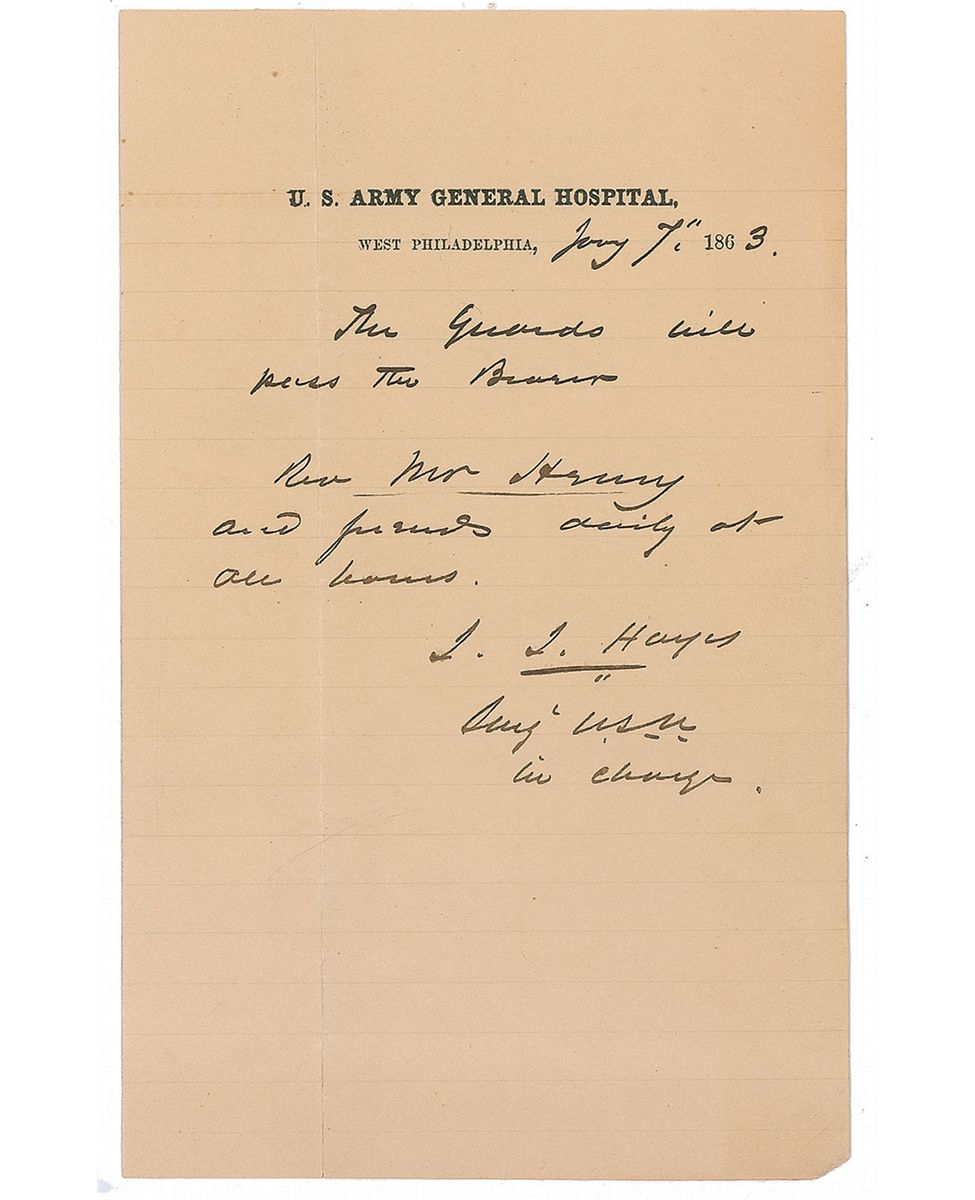 U. S. ARMY GENERAL HOSPITAL,
WEST PHILADELPHIA, Jany 7." 1863.
The Guards will
pass the Bearer
Rev Mr Henry
and friends daily at
all hours.
I. I. Hayes
Surg' U.S.V.
in charge.